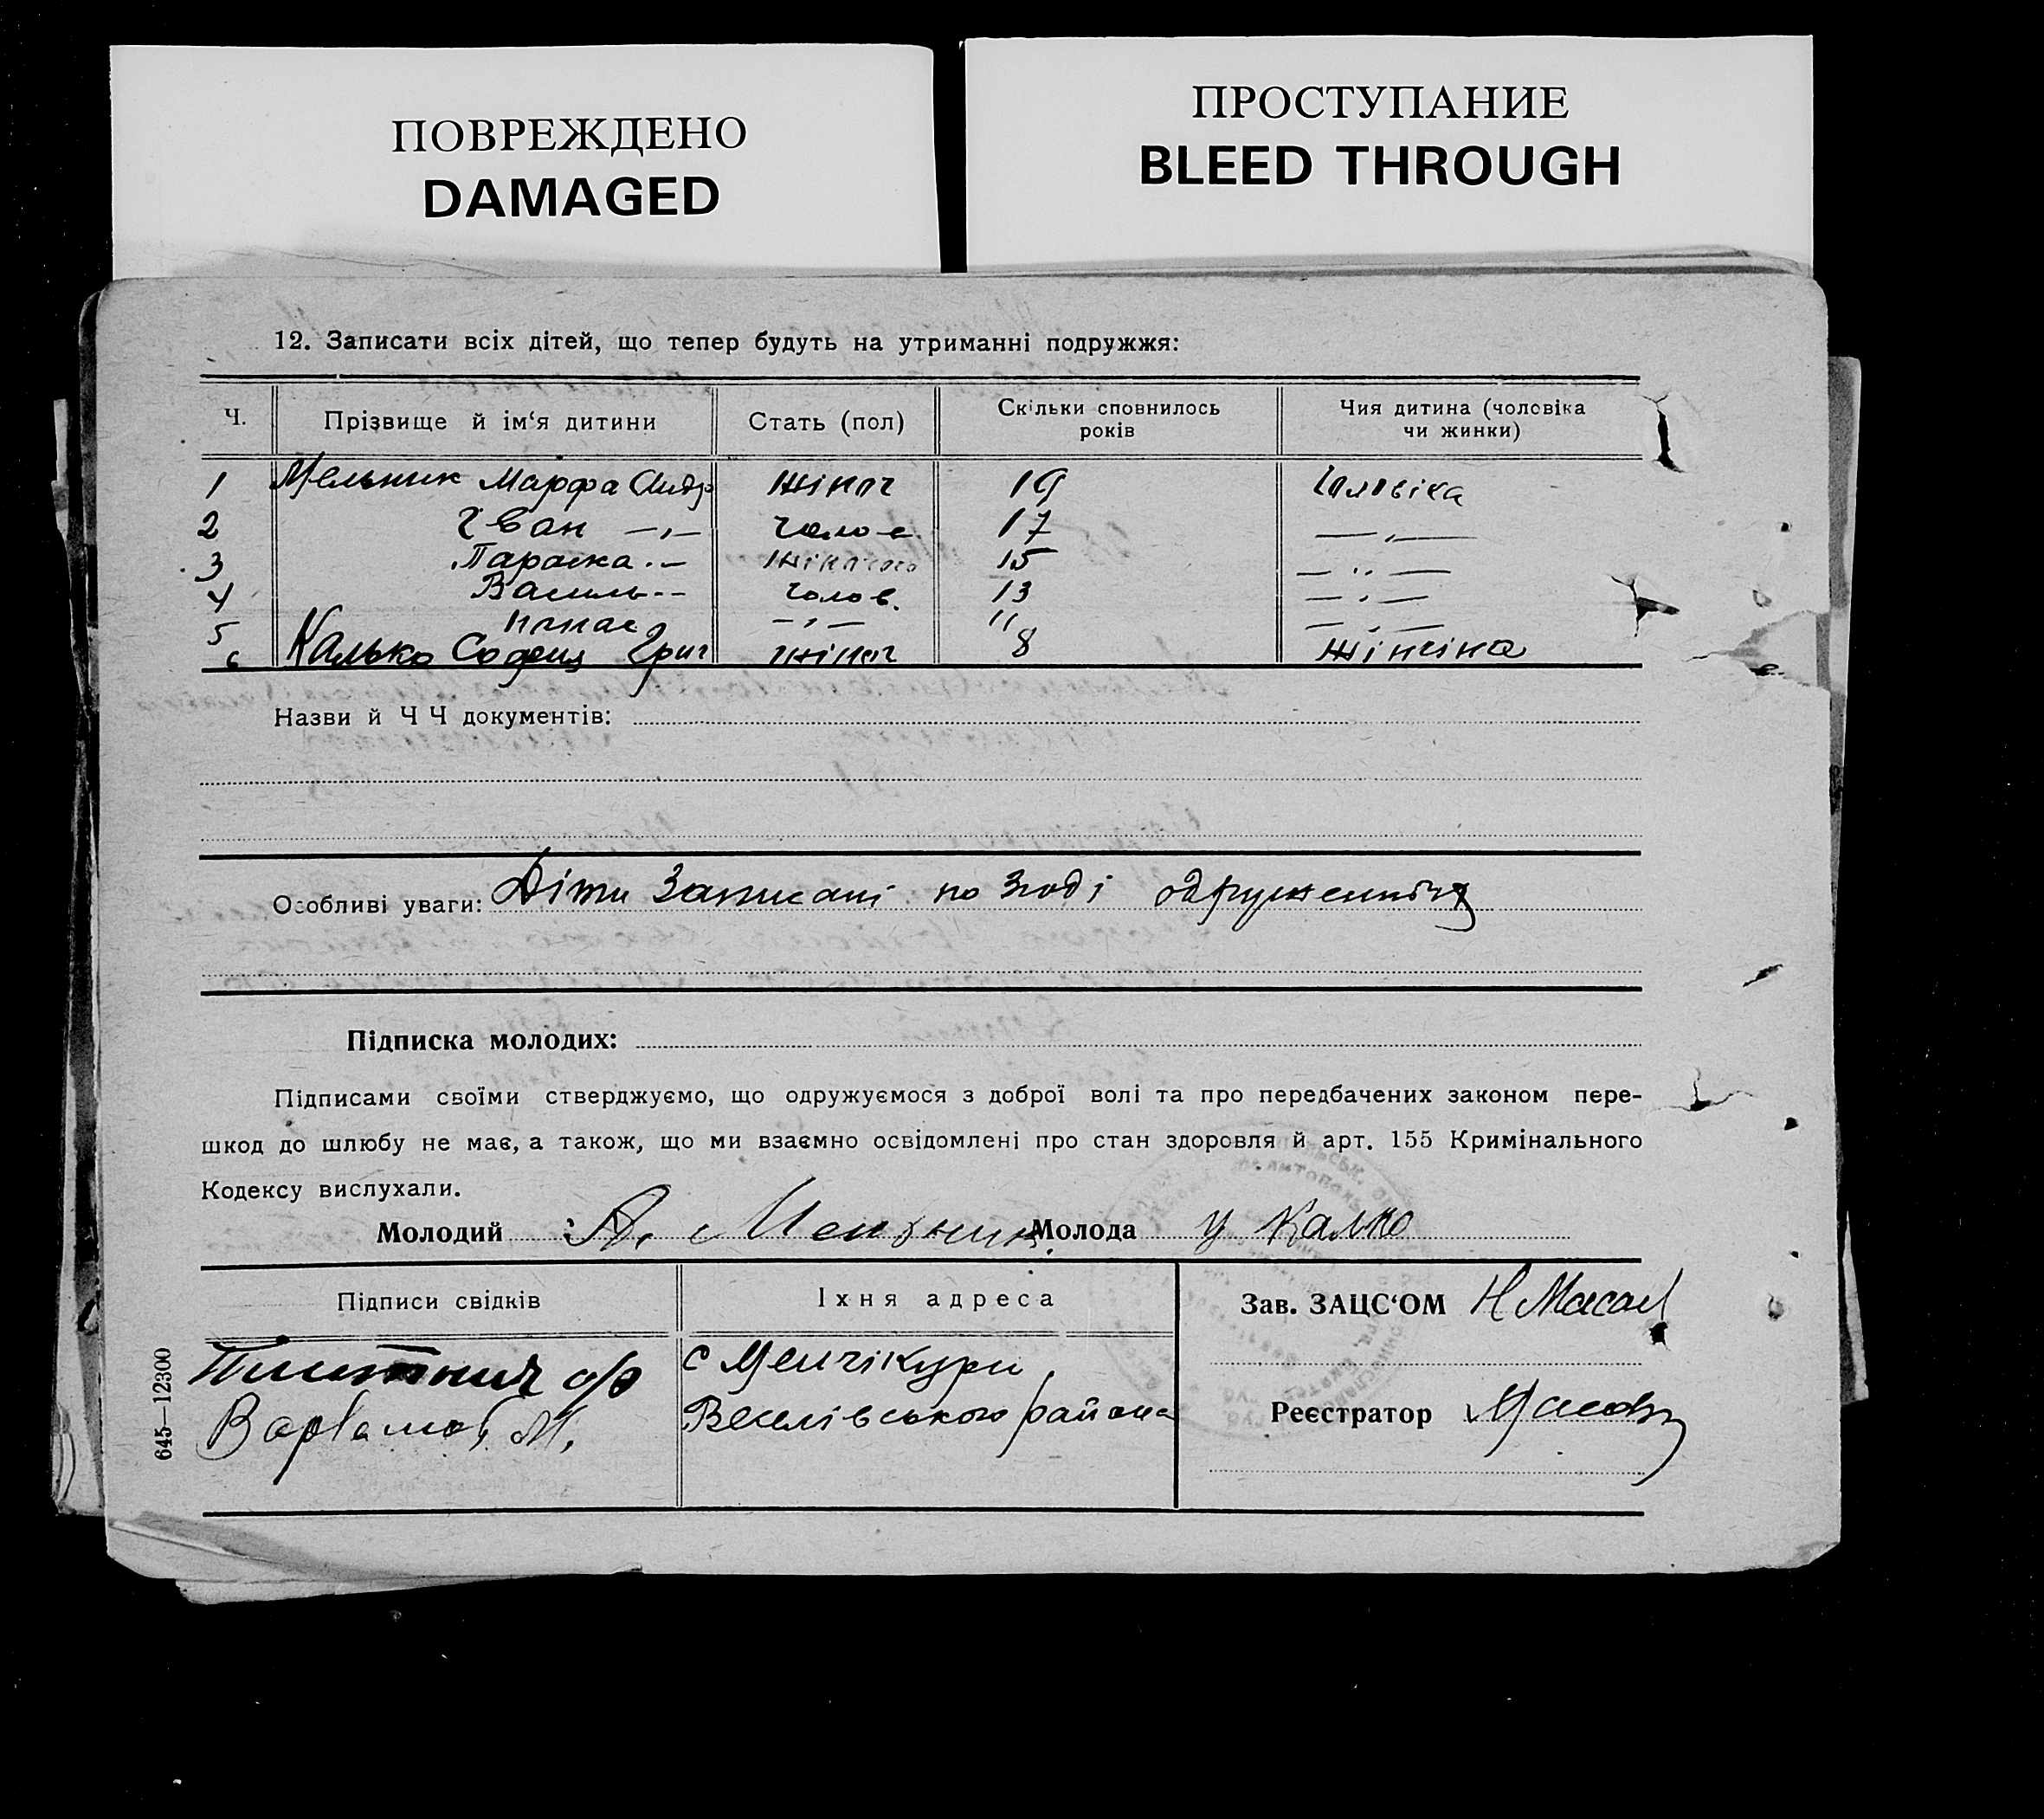 ПОВРЕЖДЕНО
DAMAGED
ПРОСТУПАНИЕ
BLEED THROUGH
12. Записати всіх дітей, що тепер будуть на утриманні подружжя:
Ч. Прізвище й ім‘я дитини Стать (пол) Скільки сповнилось років Чия дитина (чоловіка чи жинки)
1 Мельник Марфа Андр жіноч 19 Чоловіка
2 Іван —„— чолов. 17 —„—
3 Параска „— 15 —„—
4 Василь -- чолов. 13 —„—
5 —„— 11 —„—
6 Калько Григ жіноч 8 жінкіна
Назви й Ч Ч документів:
Особливі уваги: Діти Записані по Згоді
Підписка молодих:
Підписами своїми стверджуємо, що одружуємося з доброї волі та про передбачених законом пере-
шкод до шлюбу не має, а також, що ми взаємно освідомлені про стан здоровля й арт. 155 Кримінального
Кодексу вислухали.
Молодий А. Мельник Молода у Калко
Підписи свідків Їхня адреса Зав. ЗАЦС‘ОМ Н
с Менчікури
Варламов М. Веселівського района Реєстратор
645—12300